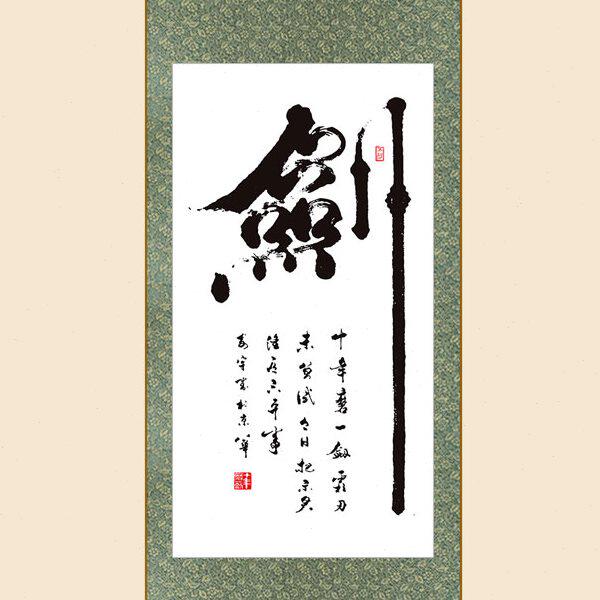 劍
十年磨一劍霜刃
未曾試今日把示君
誰有不平事
書於京華